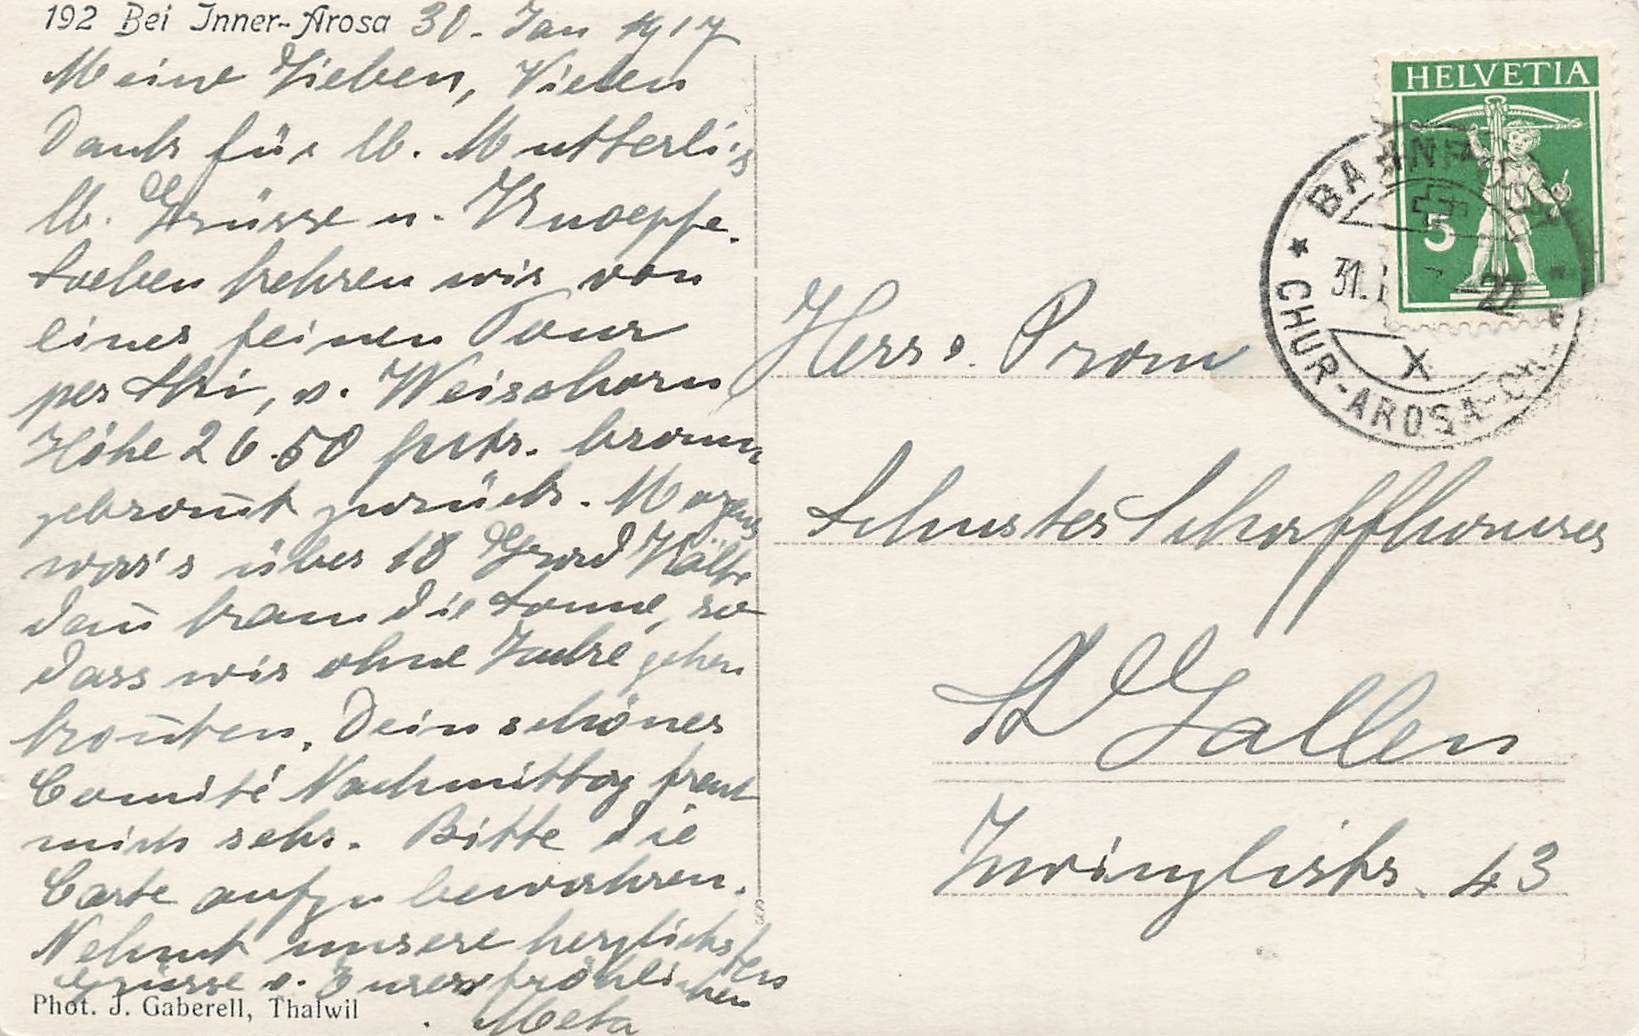 192 Bei Inner-Arosa 30. Jan 1917
Meine Lieben, Vielen
Dank für lb. Mutterli's
lb. Grüsse u. Knoepfe.
Soeben kehren wir von
einer feinen Tour
per Ski, v. Weisshorn
Höhe 26.50 mtr. braun
gebrannt zurück. Morgens
war's über 18 Grad Kälte
dann kam die Sonne, so
dass wir ohne Jacke gehen
konnten. Dein schönes
Comité Nachmittag freut
mich sehr. Bitte die
Carte aufzubewahren.
Nehmt unsere herzlichsten
Grüsse v. Eurer fröhlichen
Meta
Phot. J. Gaberell, Thalwil
HELVETIA
5
BAHNPOST
31.
22
X
CHUR-AROSA-CH
Herr
Schuster Schaffhauser
St Gallen
Zwinglistr. 43